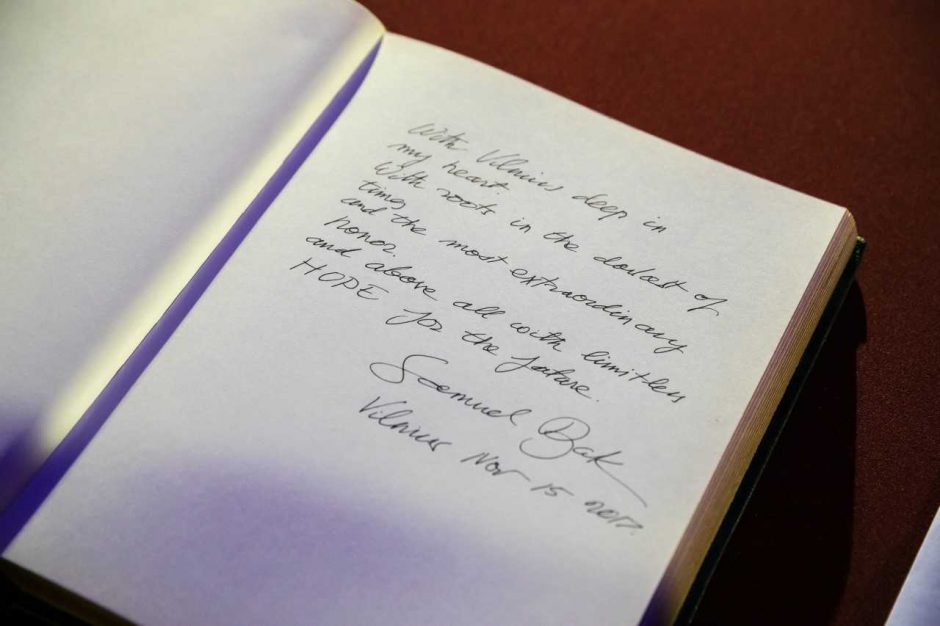 With Vilnius deep in
my heart.
With roots in the darkest of
times
and the most extraordinary
honor.
and above all with limitless
HOPE for the future.
Samuel Bak
Vilnius Nov 15 2017